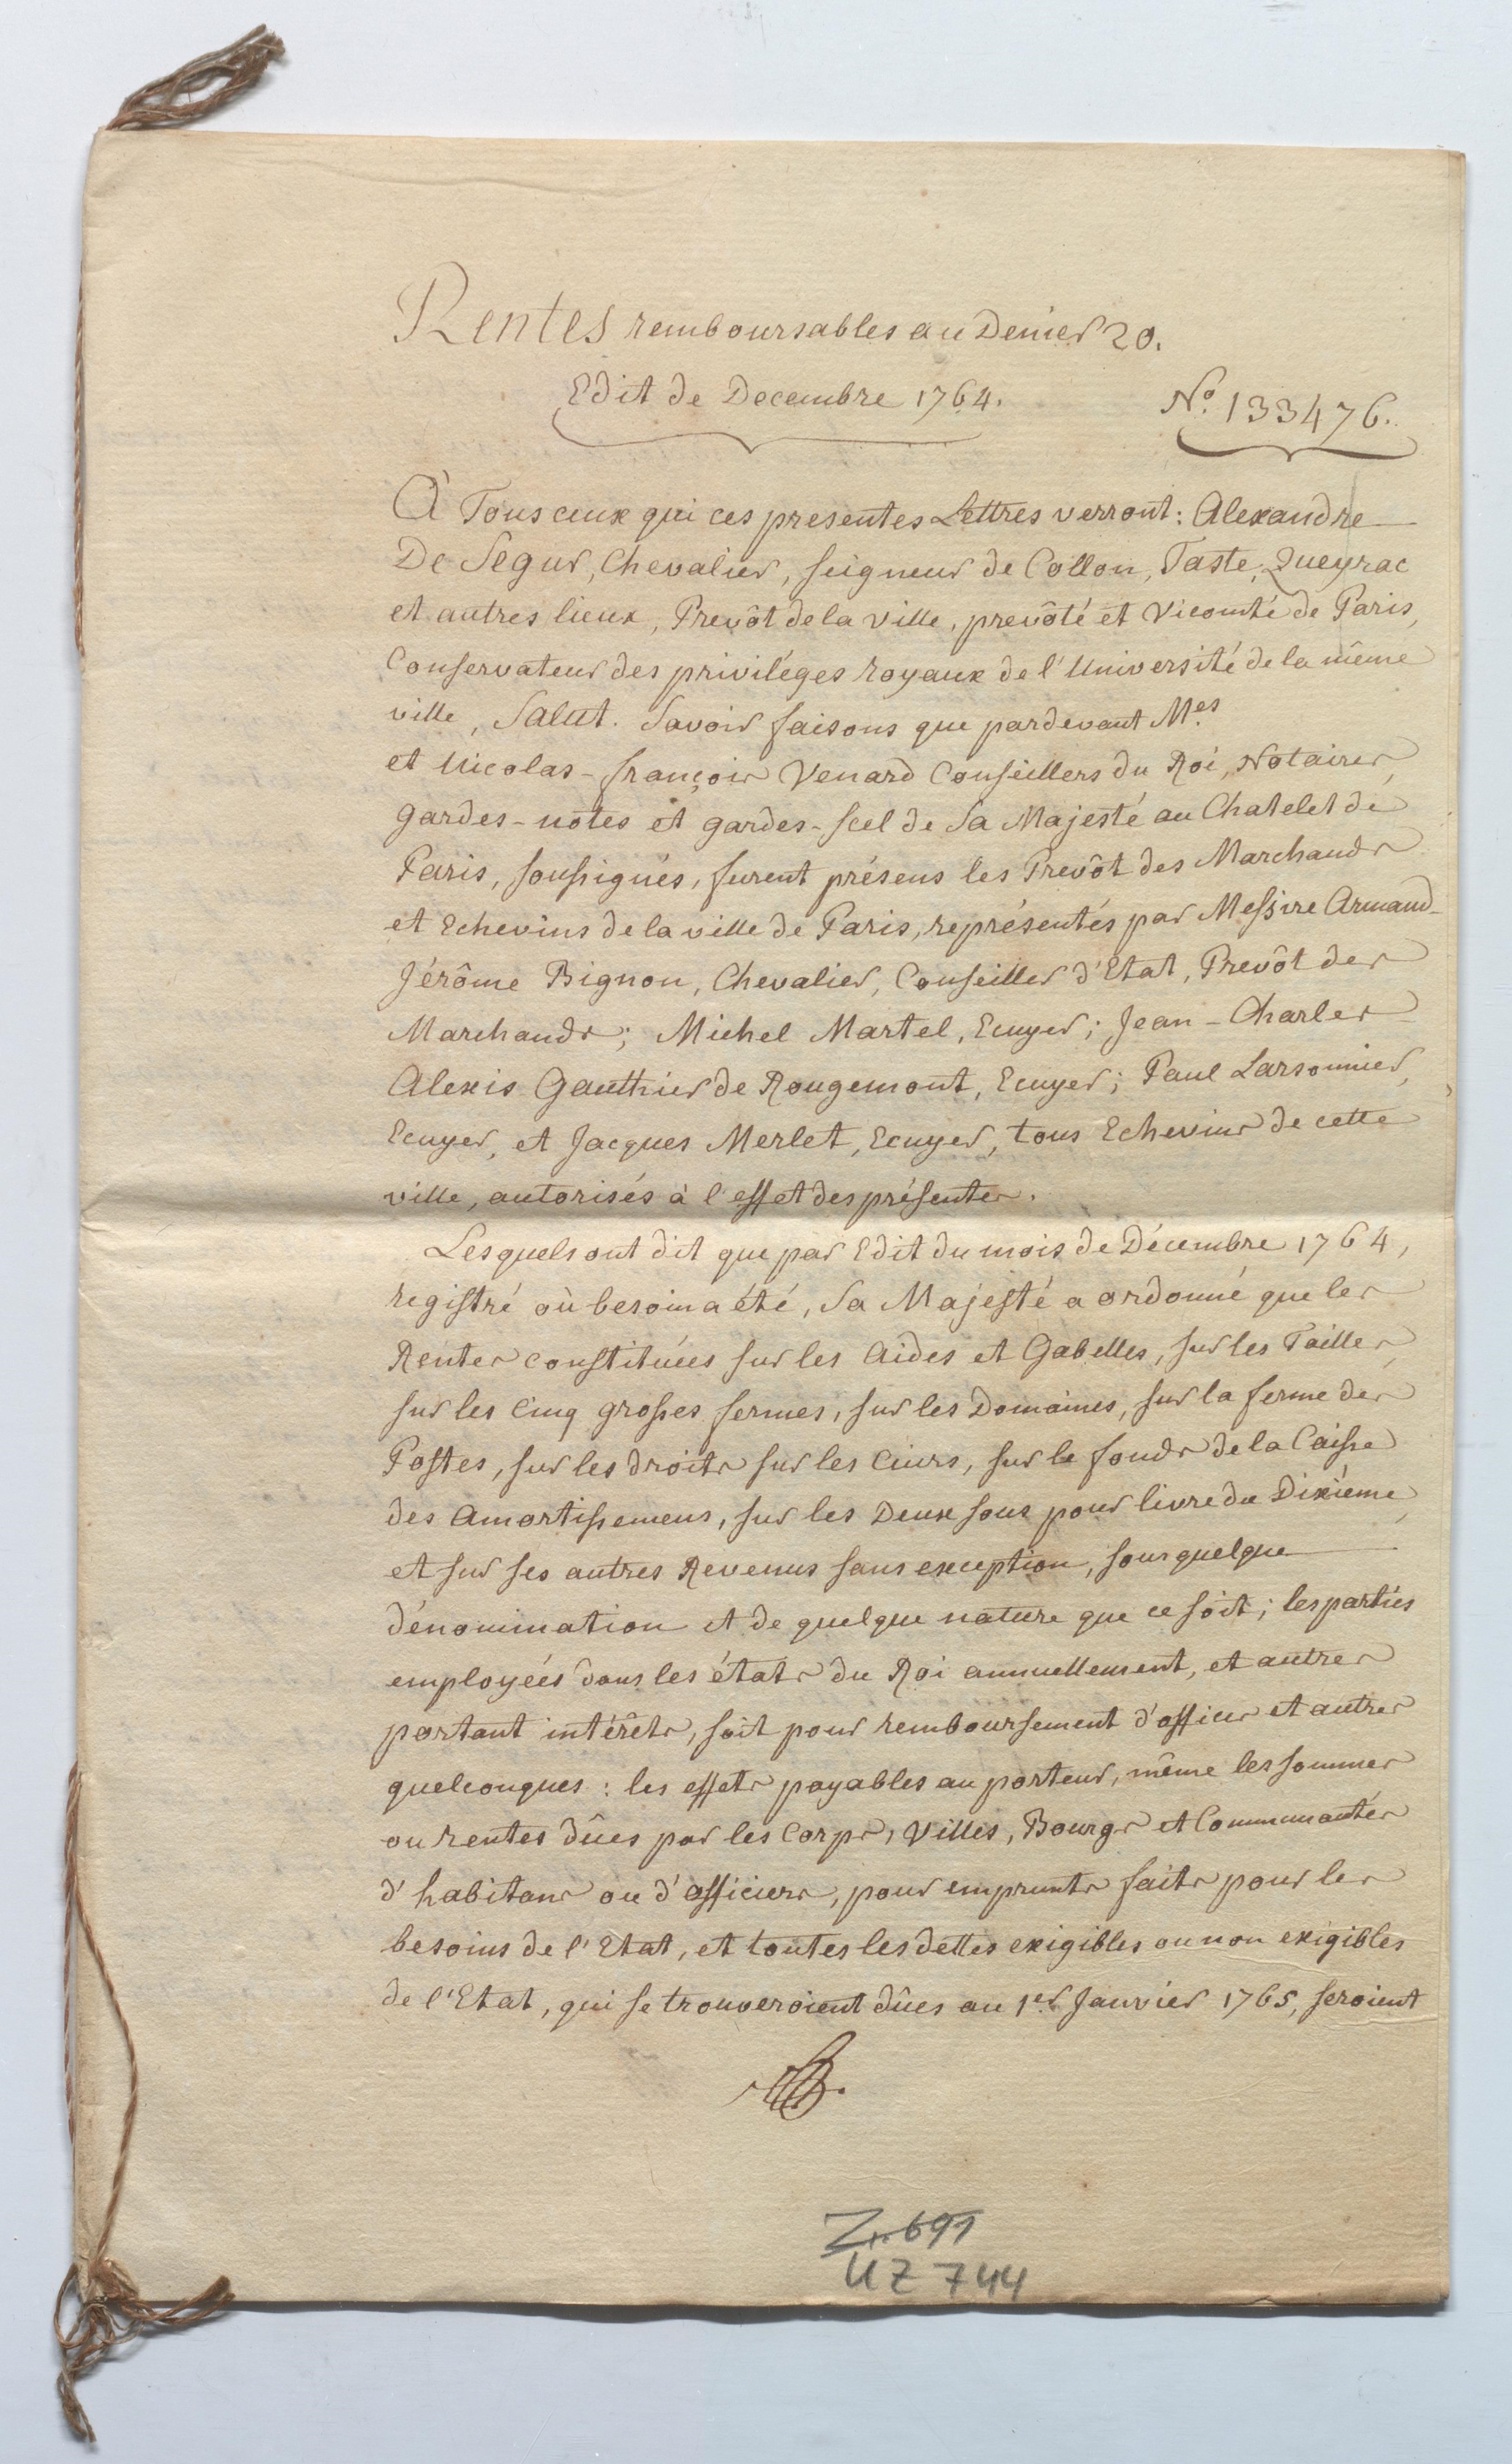 Rentes remboursables au Denier 20.
Edit de Decembre 1764.
N.º 133476.
A Tous ceux qui ces presentes Lettres verront : Alexandre
De Segur, Chevalier, seigneur de Collon, Taste, Queyrac
et autres lieux, Prevôt de la ville, prevôté et Vicomté de Paris,
Conservateur des priviléges royaux de l'Université de la même
ville, Salut. Savoir faisons que pardevant M.es
et Nicolas-françois Venard Conseillers du Roi, Notaires,
gardes-notes et gardes-scel de Sa Majesté au Chatelet de
Paris, soussignés, furent présens les Prevôt des Marchands
et Echevins de la ville de Paris, représentés par Messire Armand-
Jérôme Bignon, Chevalier, Conseiller d'Etat, Prevôt des
Marchands ; Michel Martel, Ecuyer ; Jean-Charles
Alexis Gauthier de Rougemont, Ecuyer ; Paul Larsonnier,
Ecuyer, et Jacques Merlet, Ecuyer, tous Echevins de cette
ville, autorisés à l'effet des présentes.
Lesquels ont dit que par Edit du mois de Décembre 1764,
registré où besoin a été, Sa Majesté a ordonné que les
Rentes constituées sur les Aides et Gabelles, sur les Tailles,
sur les Cinq grosses fermes, sur les Domaines, sur la ferme des
Postes, sur les droits sur les Cuirs, sur le fonds de la Caisse
des Amortissemens, sur les Deux sous pour livre du Dixième,
et sur ses autres Revenus sans exception, sous quelque
dénomination et de quelque nature que ce soit ; les parties
employées dans les états du Roi annuellement, et autres
portant intérêts, soit pour remboursement d'offices et autres
quelconques : les effets payables au porteur, même les sommes
ou rentes dûes par les Corps, Villes, Bourgs et Communautés
d'habitans ou d'officiers, pour emprunts faits pour les
besoins de l'Etat, et toutes les dettes exigibles ou non exigibles
de l'Etat, qui se trouveroient dûes au 1.er Janvier 1765, seroient
Z. 691
UZ 744